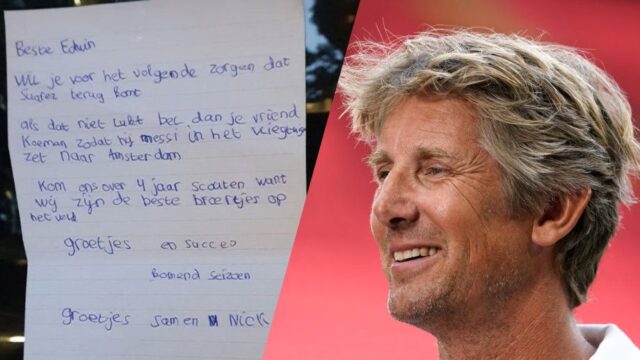 Beste Edwin
Wil je voor het volgende zorgen dat
Suarez terug komt
als dat niet lukt bel dan je vriend
Koeman zodat hij messi in het vliegtuig
zet naar Amsterdam
Kom ons over 4 jaar scouten want
wij zijn de beste broertjes op
het veld
groetjes en succes
komend seizoen
groetjes Samen Nick